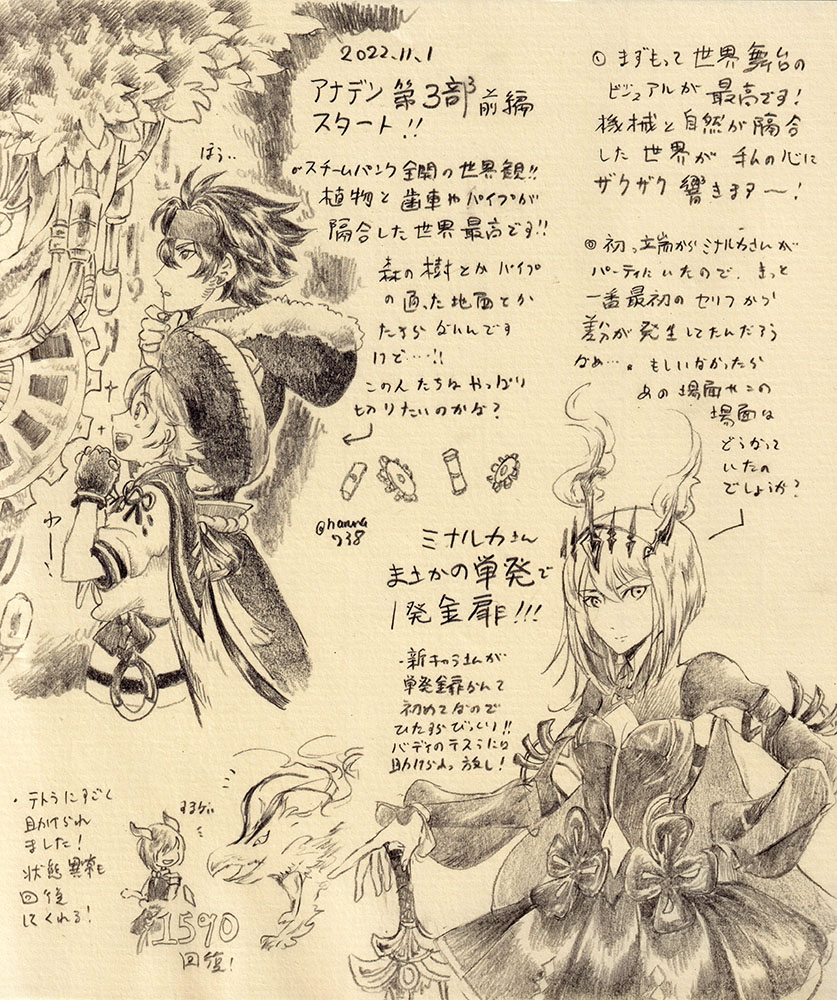 2022.11.1
アナデン第3部前編
スタート!!
ほぅ..
スチームパンク全開の世界観!!
植物と歯車やパイプが
隔合した世界最高です!!
森の樹とかパイプ
の通った地面とか
たまらないんです
けど…!!
この人たちはやっぱり
切りたいのかな?
わー!
@hanna
738
① まずもって世界舞台の
ビジュアルが最高です!
機械と自然が隔合
した世界が私の心に
ザクザク響きます〜!
◎ 初っ端からミナルカさんが
パーティにいたので、きっと
一番最初のセリフから
差分が発生してたんだろう
なぁ…。もしいなかったら
あの場面やこの
場面は
どうなって
いたの
でしょうか?
ミナルカさん
まさかの単発で
1発金扉!!!
・新キャラさんが
単発金扉なんて
初めてなので
ひたすらびっくり!!
バディのテスラには
助けられっ放し!
・テトラにすごく
助けられ
ました!
状態異常も
回復
してくれる!
1590
回復!